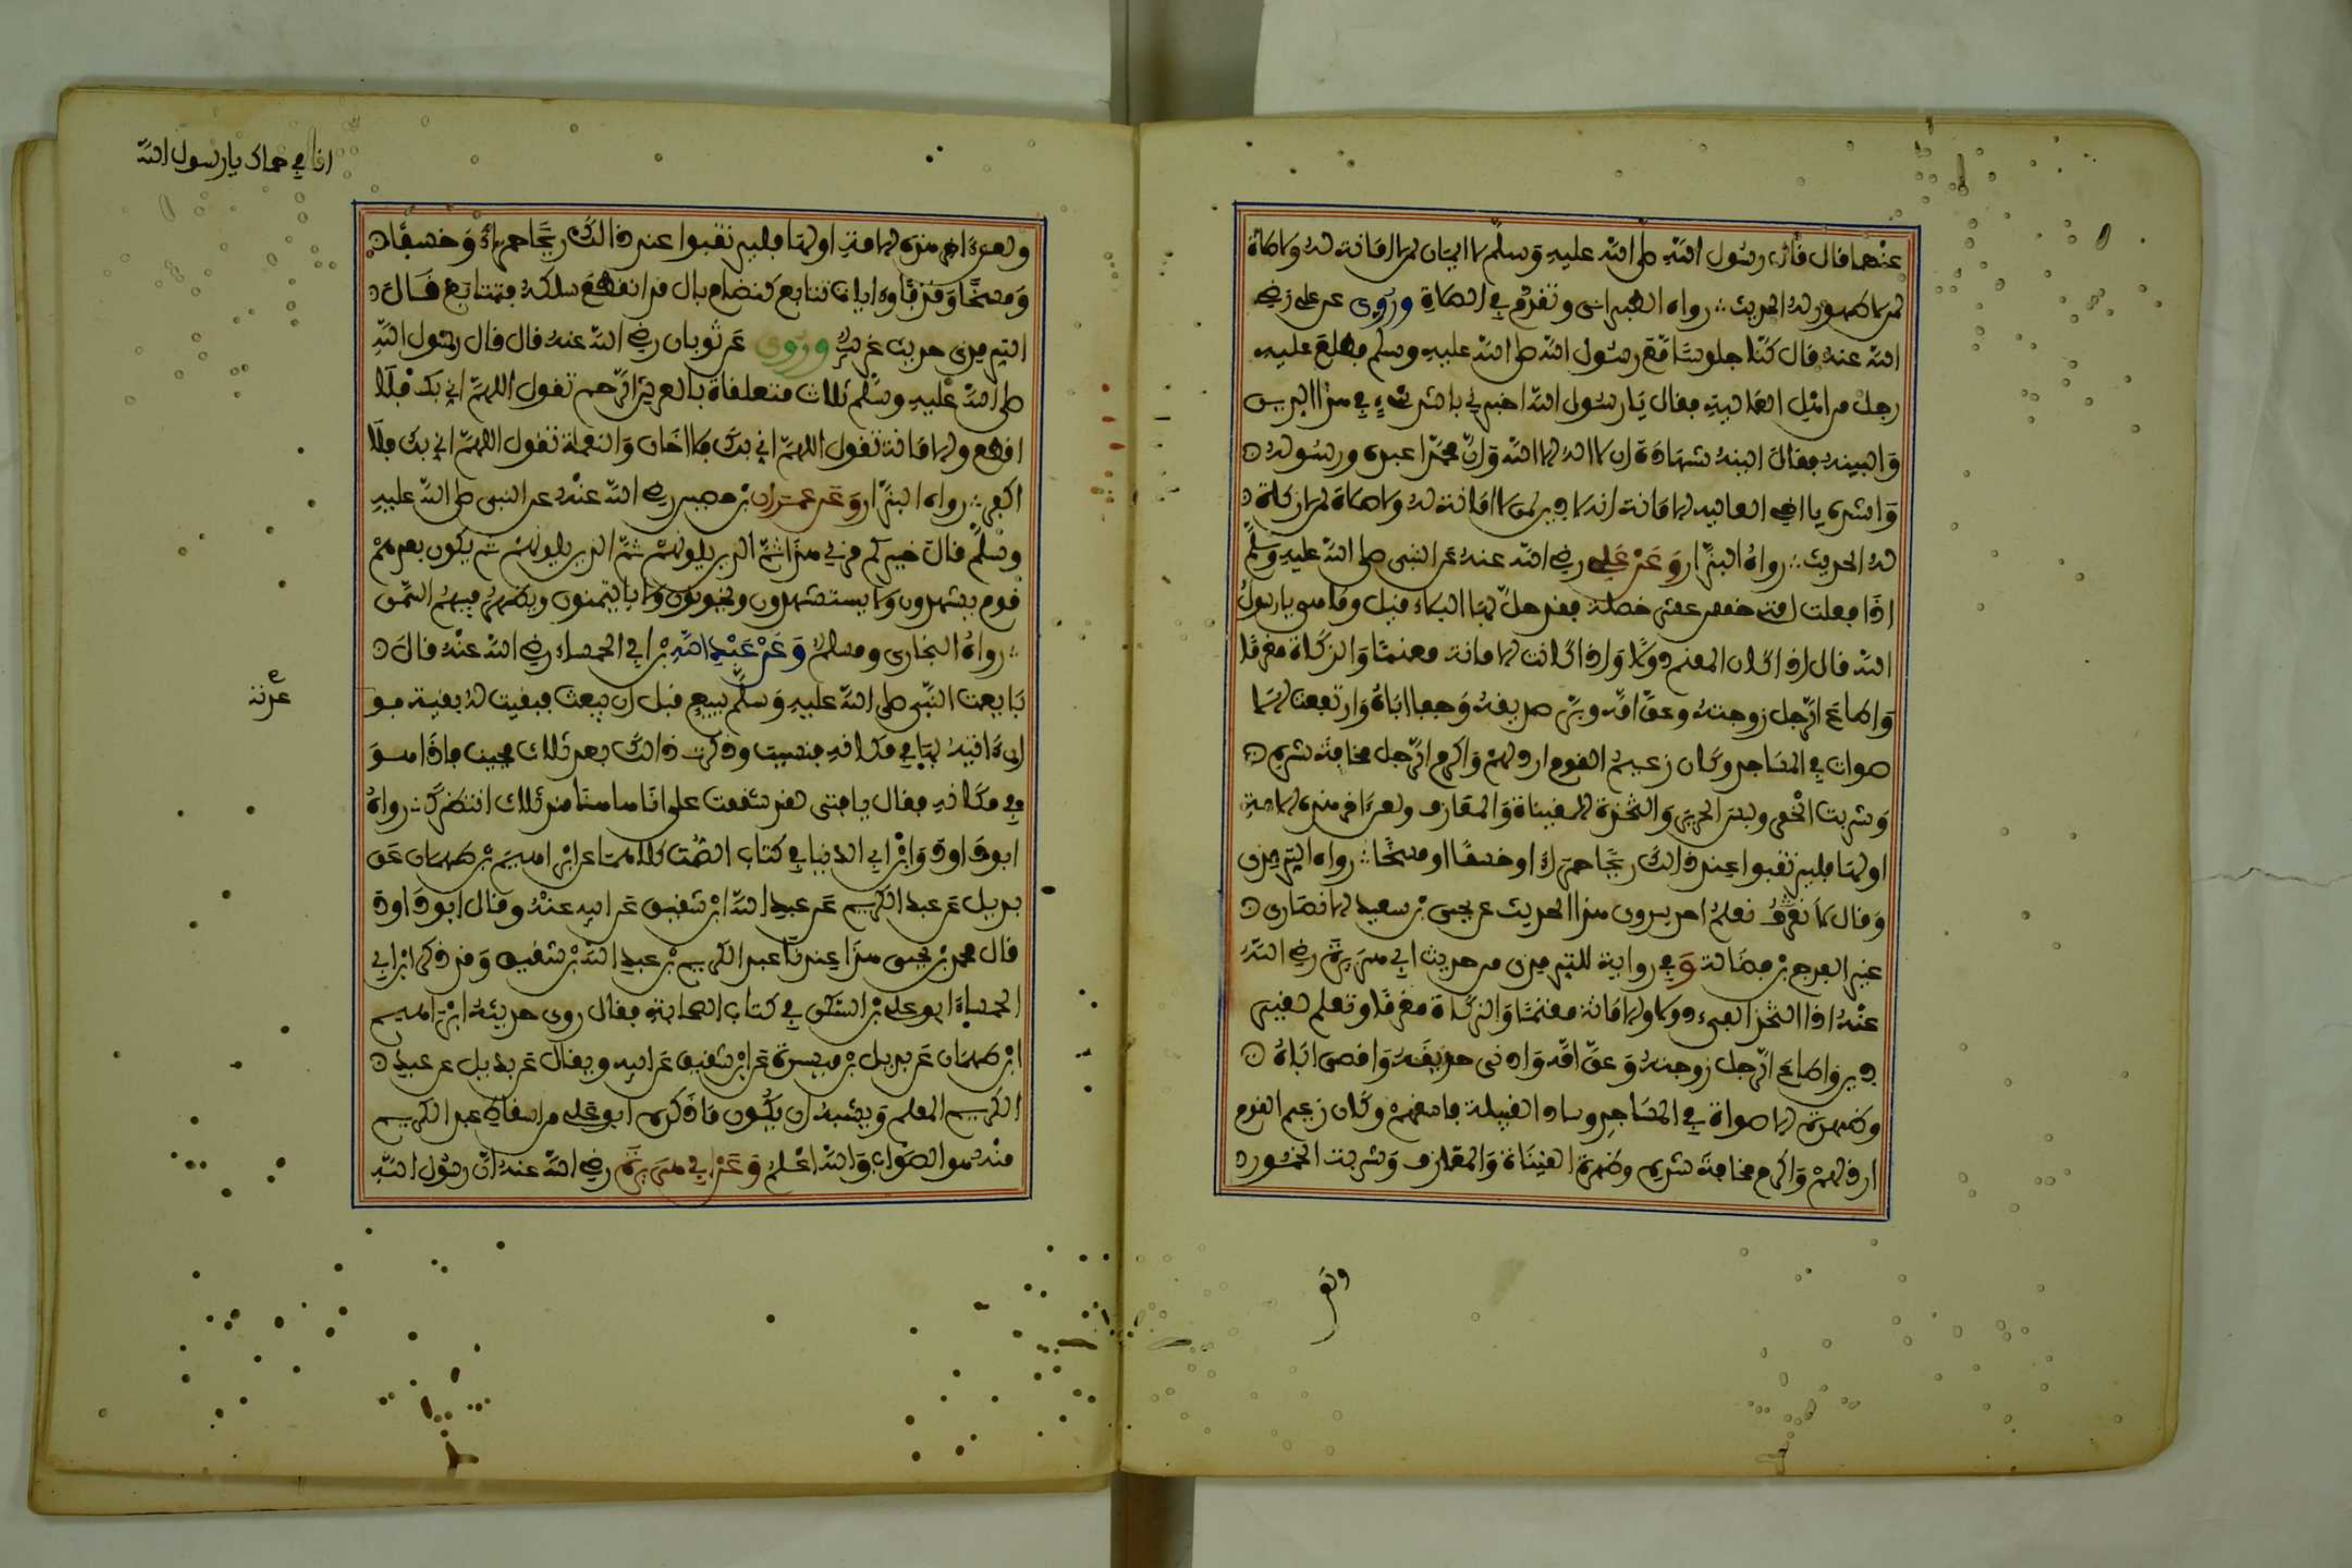 عنهما قال قال رسول الله صلى الله عليه وسلم لا ايمان لمن لا امانة له ولا صلاة
لمن لا طهور له الحديث رواه الطبراني وتقدم في الصلاة وروى عن علي رضي
الله عنه قال كنا جلوسا مع رسول الله صلى الله عليه وسلم فطلع عليه
رجل من اهل العالية فقال يا رسول الله اخبرني باشد شيء في هذا الدين
والينه فقال الينه شهادة ان لا اله الا الله وان محمدا عبده ورسوله
واشده يا اخا العالية الامانة انه لا دين لمن لا امانة له ولا صلاة له ولا زكاة
له الحديث رواه البزار وعن علي رضي الله عنه عن النبي صلى الله عليه وسلم
اذا فعلت امتي خمس عشرة خصلة فقد حل بها البلاء قيل وما هي يا رسول
الله قال اذا كان المغنم دولا واذا كانت الامانة مغنما والزكاة مغرما
واطاع الرجل زوجته وعق امه وبر صديقه وجفا اباه وارتفعت الا
صوات في المساجد وكان زعيم القوم ارذلهم واكرم الرجل مخافة شره
وشربت الخمر ولبس الحرير واتخذت القينات والمعازف ولعن اخر هذه الامة
اولها فليرتقبوا عند ذلك ريحا حمراء او خسفا او مسخا رواه الترمذي
وقال لا نعرف نعلم احد يروون هذا الحديث عن يحيى بن سعيد الانصاري
غير الفرج بن فضالة وفي رواية للترمذي من حديث ابي هريرة رضي الله
عنه اذا اتخذ الفيء دولا والامانة مغنما والزكاة مغرما وتعلم لغير
دين واطاع الرجل زوجته وعق امه وادنى صديقه واقصى اباه
وظهرت الاصوات في المساجد وساد القبيلة فاسقهم وكان زعيم القوم
ارذلهم واكرم مخافة شره وظهرت القينات والمعازف وشربت الخمور
ولعن
انا في حماك يا رسول الله
ولعن اخر هذه الامة اولها فليرتقبوا عند ذلك ريحا حمراء وخسفا
ومسخا وقذفا وايات تتابع كنظام بال قد انقطع سلكه فتتابع قال
الترمذي حديث غريب وروى عن ثوبان رضي الله عنه قال قال رسول الله
صلى الله عليه وسلم ثلاث متعلقات بالعرش الرحم تقول اللهم اني بك فلا
اقطع والامانة تقول اللهم اني بك فلا اخان والنعمة تقول اللهم اني بك فلا
اكفر رواه البزار وعن عمران بن حصين رضي الله عنه عن النبي صلى الله عليه
وسلم قال خيركم قرني هذا ثم الذين يلونهم ثم الذين يلونهم ثم يكون بعدهم
قوم يشهدون ولا يستشهدون ويخونون ولا يايتمنون ويظهر فيهم السمن
رواه البخاري ومسلم وعن عبد الله بن ابي الحمساء رضي الله عنه قال
بايعت النبي صلى الله عليه وسلم ببيع قبل ان يبعث فبقيت له بقية فو
ان اتيه بها في مكانه فنسيت وذكرت ذلك بعد ثلاث فجيت فاذا هو
في مكانه فقال يا فتى لقد شققت علي انا هاهنا منذ ثلاث انتظرك رواه
ابو داود وابن ابي الدنيا في كتاب الصمت كلاهما عن ابراهيم بن طهمان عن
بديل عن عبد الكريم عن عبد الله بن شقيق عن ابيه عنه وقال ابو داود
قال محمد بن يحيى هذا عندنا عبد الكريم بن عبد الله بن شقيق وقد ذكر ابن ابي
الحمساء ابو علي بن السكن في كتاب الصحابة فقال روى حديثه ابراهيم
ابن طهمان عن بديل بن ميسرة عن ابن شقيق عن ابيه ويقال عن بديل عن عبد
الكريم المعلم ويشبه ان يكون ما ذكره ابو علي من اسقاط عبد الكريم
منه هو الصواب والله اعلم وعن ابي هريرة رضي الله عنه ان رسول الله